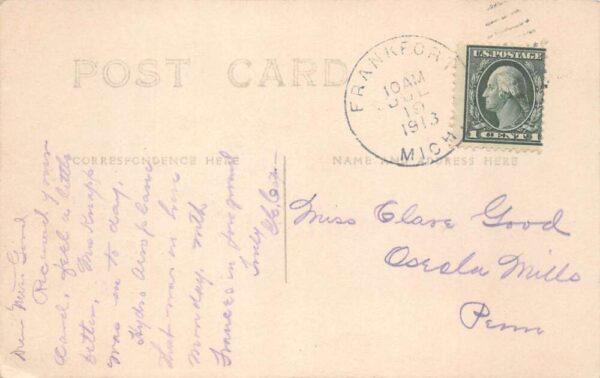 POST CARD
FRANKFORT
10 AM
JUL
19
1913
MICH
U.S. POSTAGE
1 CENT 1
CORRESPONDENCE HERE
NAME AND ADDRESS HERE
Dear Miss Good
Received your
card, feel a little
better. Mrs Knapp
was in to day.
Hydro Aeroplane
that was in here
Monday, with
Frances in foreground
Miss Clare Good
Oseola Mills
Penn